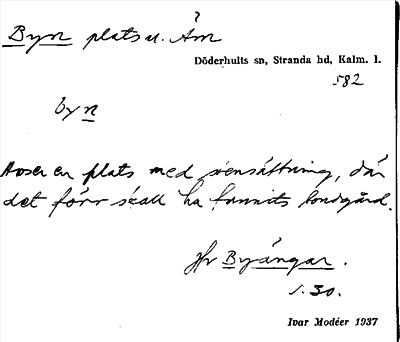 Byn plats u. Äm
Döderhults sn, Stranda hd, Kalm. l.
582
byn
Avser en plats med stensättning, där
det förr skall ha funnits bondgård.
Hr Byängar.
s. 30.
Ivar Modéer 1937